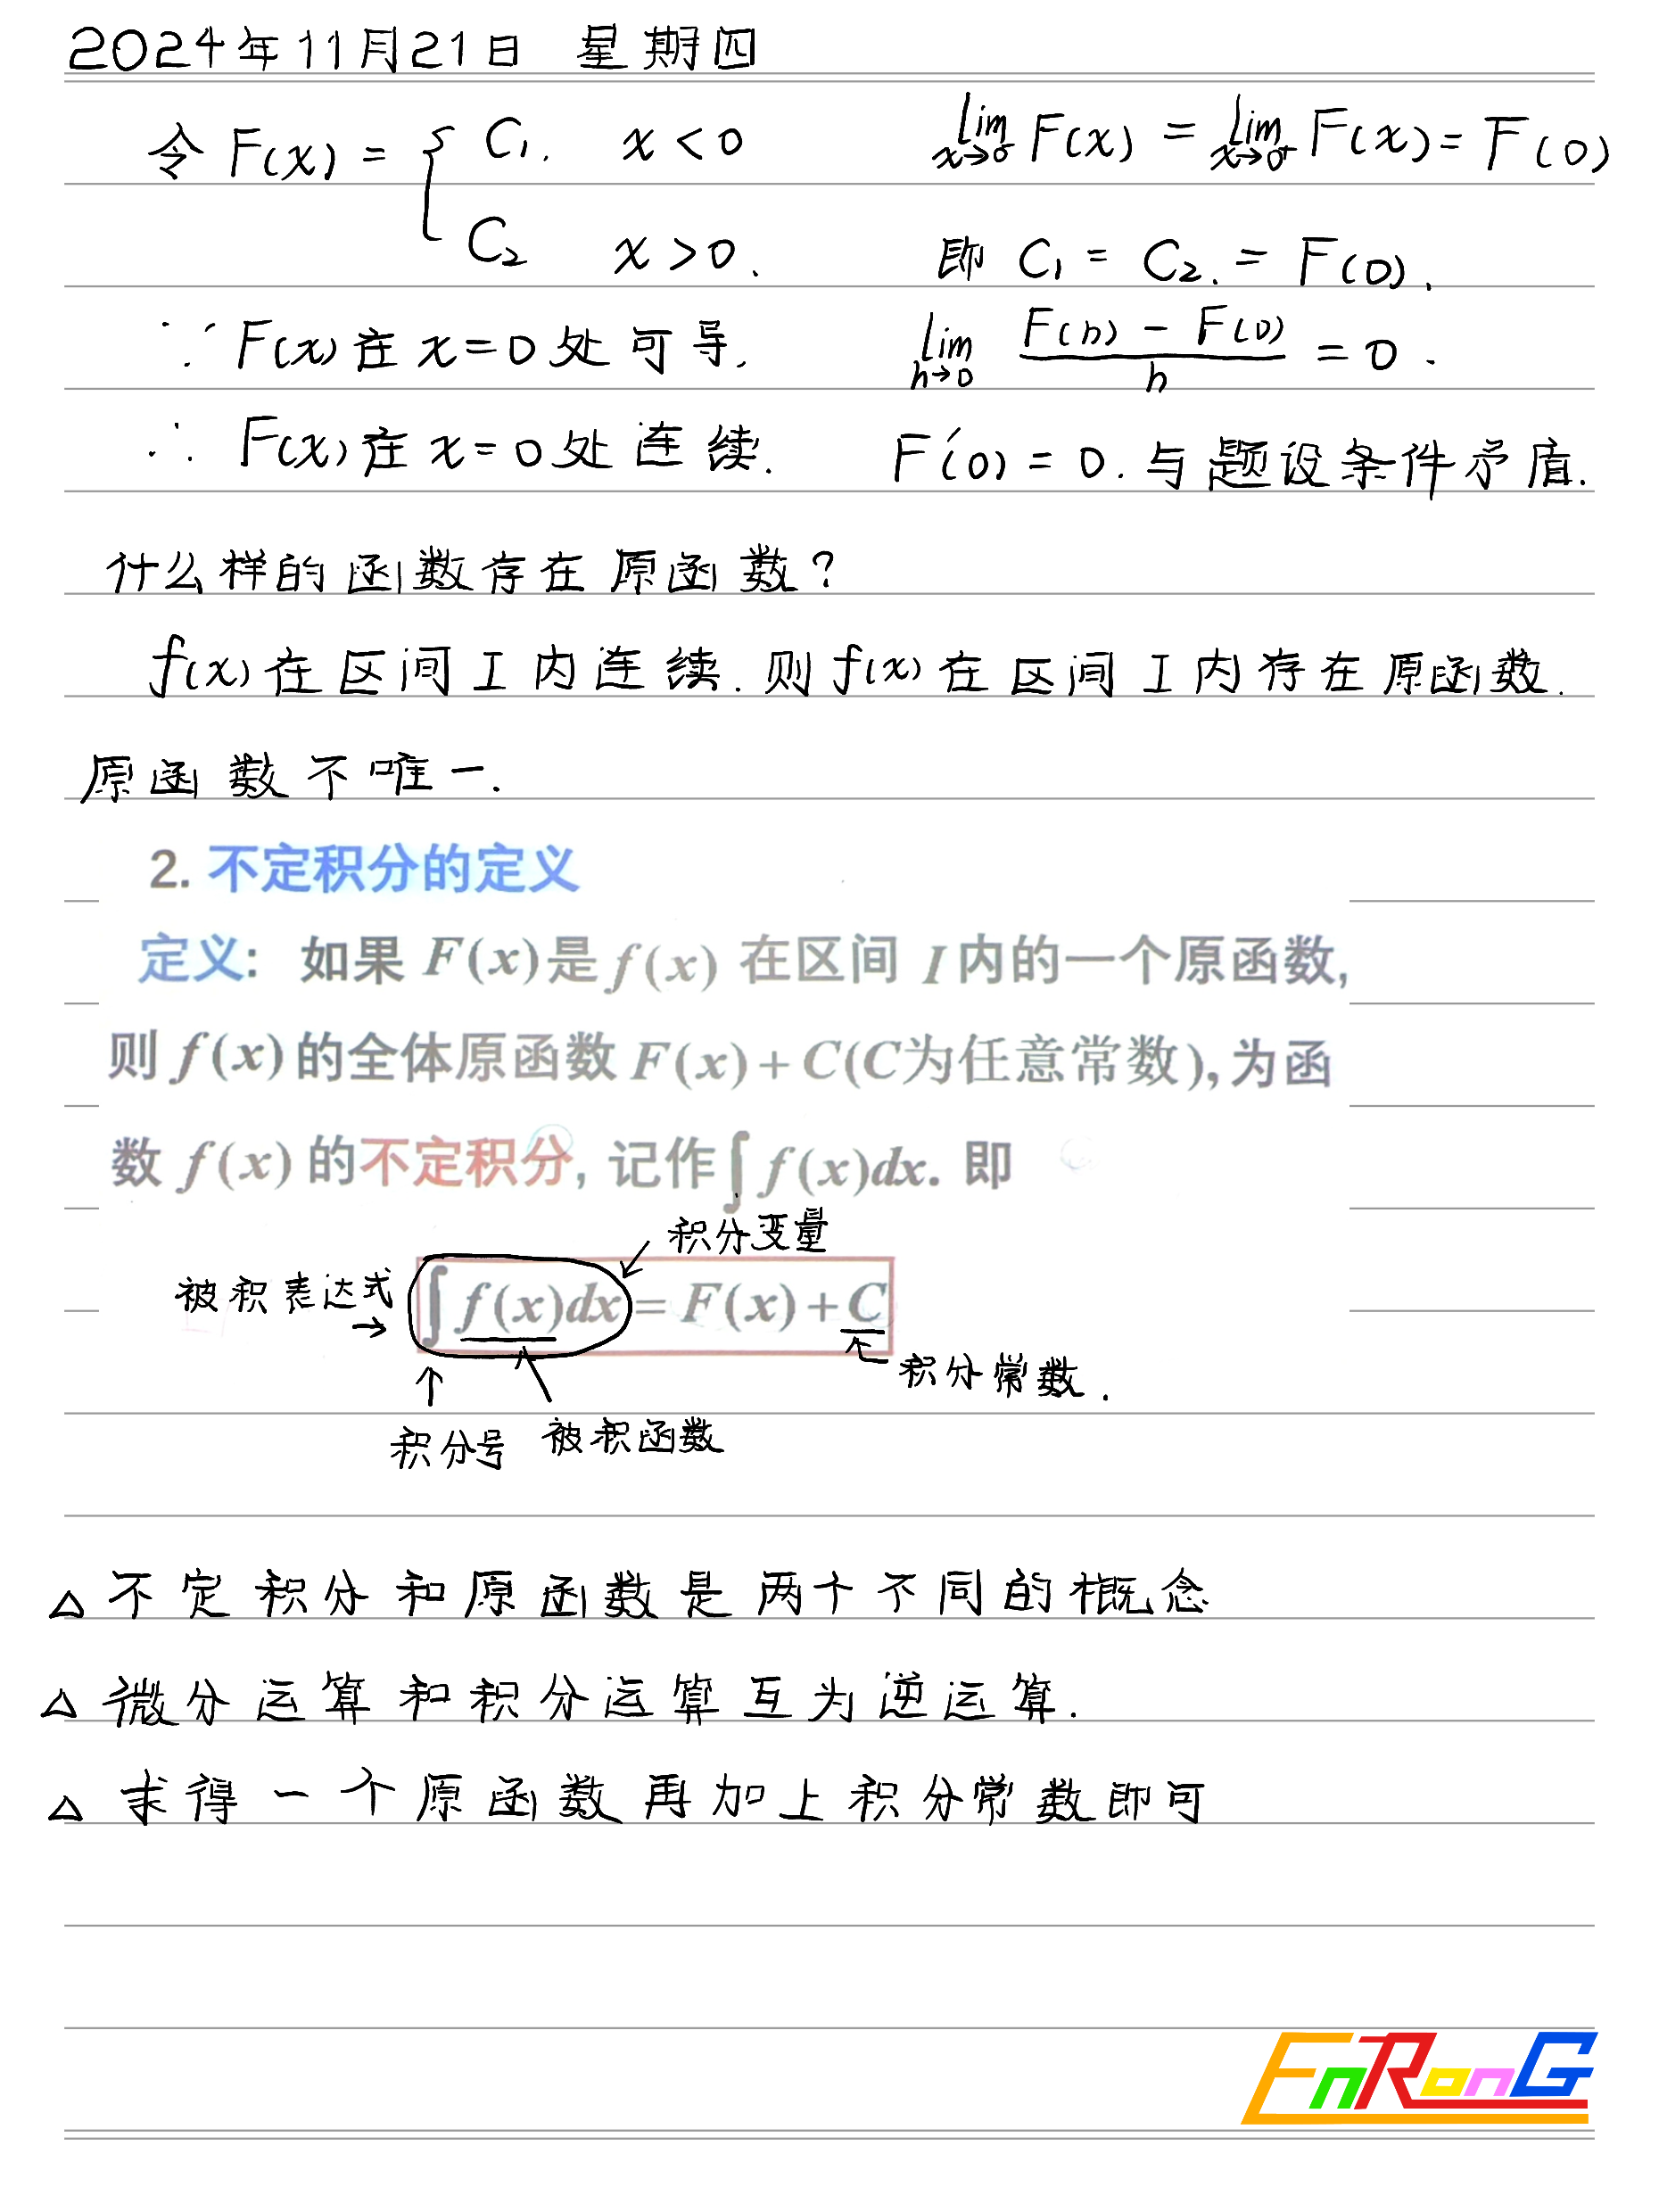 2024年11月21日 星期四
令 F(x) = { C₁. x < 0
C₂ x > 0.
∵ F(x)在 x=0 处可导.
∴ F(x)在 x=0 处连续.
lim x→0⁻ F(x) = lim x→0⁺ F(x) = F(0)
即 C₁ = C₂. = F(0).
lim h→0 (F(h) - F(0))/h = 0.
F'(0) = 0. 与题设条件矛盾.
什么样的函数存在原函数?
f(x)在区间I内连续.则f(x)在区间I内存在原函数.
原函数不唯一.
2. 不定积分的定义
定义: 如果 F(x)是 f(x) 在区间 I 内的一个原函数,
则 f(x) 的全体原函数 F(x)+C(C为任意常数),为函
数 f(x) 的不定积分, 记作∫f(x)dx. 即
积分变量
被积表达式
∫f(x)dx = F(x)+C
积分常数.
积分号 被积函数
△ 不定积分和原函数是两个不同的概念
△ 微分运算和积分运算互为逆运算.
△ 求得一个原函数再加上积分常数即可
EnRonG